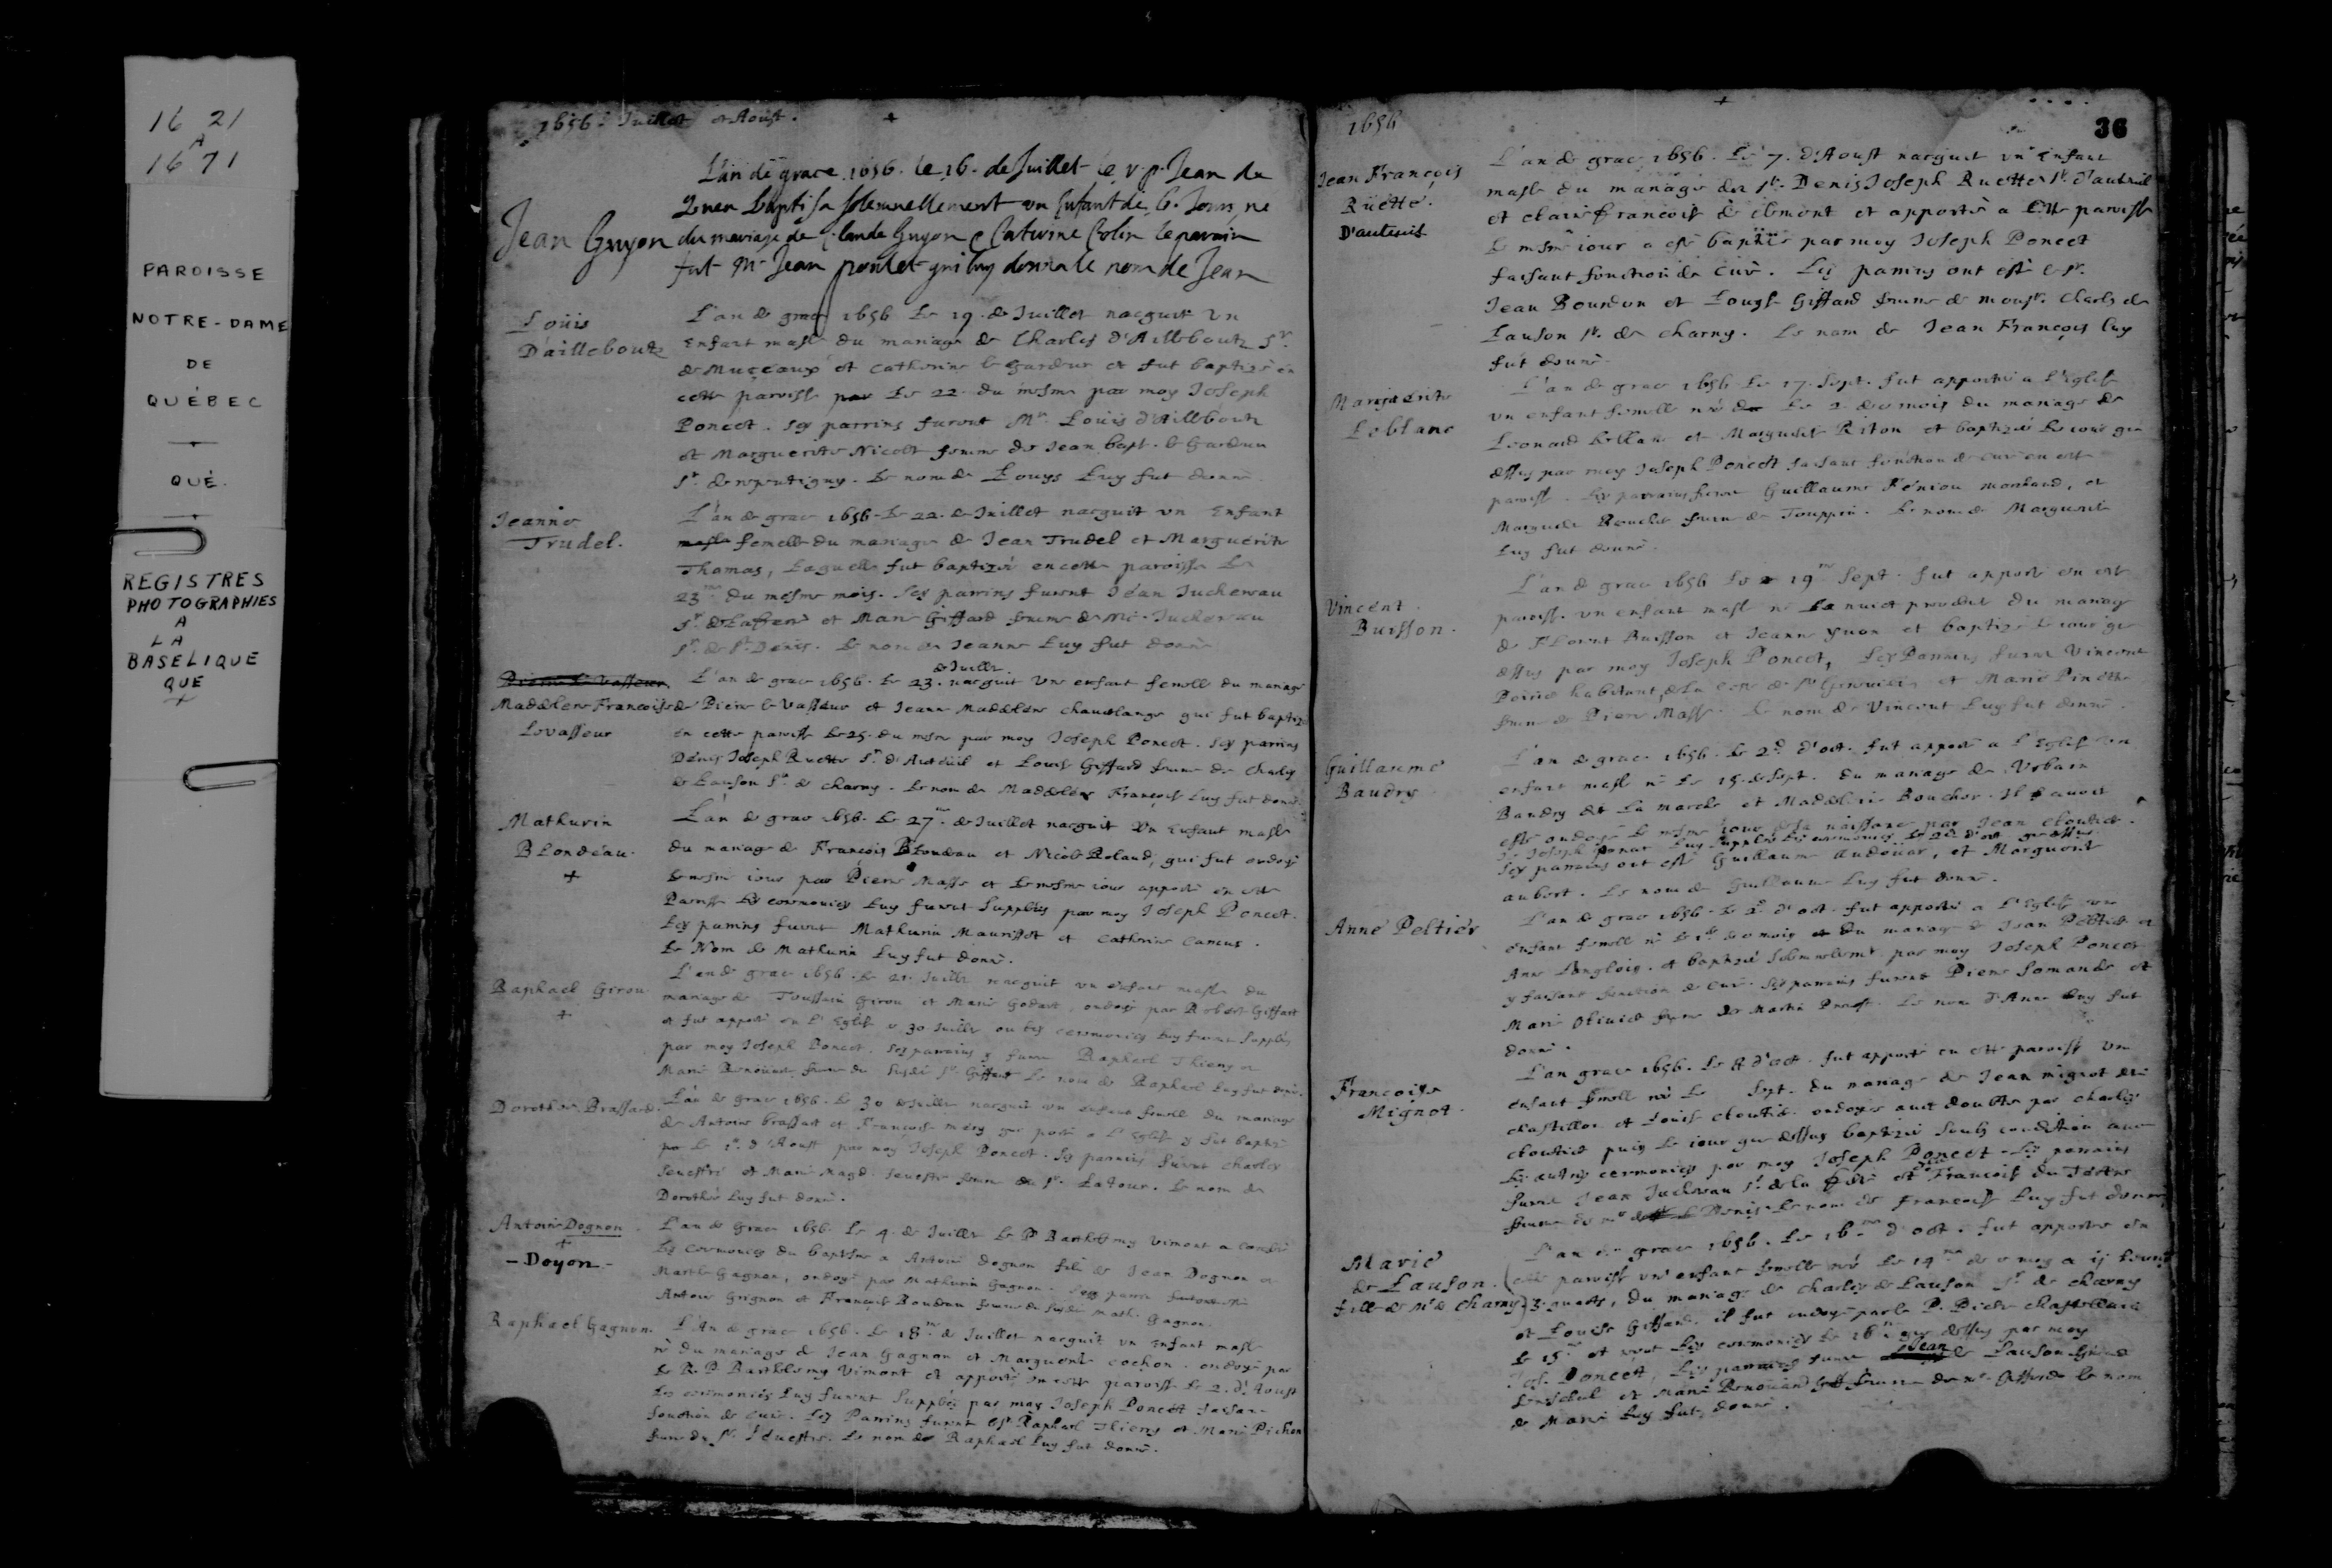 16 21
A
16 71
PAROISSE
NOTRE-DAME
DE
QUÉBEC
QUÉ.
REGISTRES
PHOTOGRAPHIES
A
LA
BASELIQUE
QUE
1656. Juillet et Aoust.
L'an de grace 1656. le 16. de Juillet le r. p. Jean de
Quen baptisa solemnellement un Enfant de 6. Jours, né
Jean Guyon du mariage de Claude Guyon & Caterine Colin le parain
fut Mr Jean poulet qui luy donna le nom de Jean
Loüis
D'aillebout
L'an de grace 1656 le 19. de Juillet nacquit vn
Enfant masle du mariage de Charles d'Aillebout Sr.
de Musceaux et Catherine le Gardeur et fut baptizé en
cette paroisse le 22. du mesme par moy Joseph
Poncet. ses parrins furent Mr. Louis d'Aillebout
et Marguerite Nicolet femme de Jean bapt. le Gardeur
Sr. de repentigny. Le nom de Louys luy fut donné.
Jeanne
Trudel.
L'an de grace 1656. le 22. de Juillet nacquit vn Enfant
masle femelle du mariage de Jean Trudel et Marguerite
Thomas, Laquelle fut baptizée en cette paroisse le
23me du mesme mois. Ses parrins furent Jean Juchereau
et Marie Giffard femme de Nic. Juchereau
Sr. de St. Denis. Le nom de Jeanne luy fut donné
de Juillet
Pierre le Vasseur L'an de grace 1656. le 23. nacquit vne enfant femelle du mariage
Madelene Francoise de Pierre le Vasseur et Jeanne Madelene chauerlange qui fut baptizé
Levasseur en cette paroisse le 25. du mesme par moy Joseph Poncet. Ses parrins
Denis Joseph Ruette Sr. d'Auteüil et Louise Giffard femme de Charles
de Lauson Sr. de charny. Le nom de Madelene Françoise luy fut donné.
Mathurin
Blondeau.
+
L'an de grace 1656. le 27me de Juillet nacquit vn Enfant masle
du mariage de François Blondeau et Nicole Roland, qui fut ondoyé
le mesme iour par Pierre Masse et le mesme iour apporté en cette
Paroisse les ceremonies luy furent supplées par moy Joseph Poncet.
Les parrins furent Mathurin Maurisset et Catherine Camus.
Le Nom de Mathurin luy fut donné.
Raphael Girou
+
L'an de grace 1656. le 21. Juillet nacquit vn enfant masle du
mariage de Toussain Girou et Marie Godart, ondoyé par Robert Giffart
et fut apporté en l'Eglise le 30 Juillet ou les ceremonies luy furent supplées
par moy Joseph Poncet. Ses parrains y furent Raphael Thiery et
Marie Renouard femme du susdit Sr. Giffart Le nom de Raphael luy fut donné.
Dorothée Brassard.
L'an de grace 1656. le 30 de Juillet nacquit vn enfant femelle du mariage
de Antoine brassart et Françoise mery qui porté a l'Eglise y fut baptizé
le 1er. d'Aoust par moy Joseph Poncet. Ses parrains furent charles
Seuestre et Marie Magd. Seuestre femme du Sr. Latour. Le nom de
Dorothée luy fut donné.
Antoine Dognon
+
- Doyon -
L'an de Grace 1656. le 4. de Juillet le P. Barthelemy Vimont a
les ceremonies du baptesme a Antoine Dognon fils de Jean Dognon et
Marthe Gagnon, ondoyé par Mathurin Gagnon.
Antoine Grignon et Françoise Boudeau femme du susdit Math. Gagnon.
Raphael Gagnon.
L'An de grace 1656. le 18me de Juillet nacquit vn Enfant masle
né du mariage de Jean Gagnon et Marguerite cochon. ondoyé par
le R. P. Barthelemy Vimont et apporté en cette paroisse le 2. d'Aoust
les ceremonies luy furent supplées par moy Joseph Poncet faisant
fonction de curé. Les Parrins furent Raphael Thiery et Marie Pichon
femme du Sr. Seuestre. Le nom de Raphael luy fut donné.
1656
36
Jean François
Ruette.
D'auteuil
L'an de grace 1656. Le 7. d'Aoust nacquit vn Enfant
masle du mariage de Sr. Denis Joseph Ruette Sr. d'auteuil
et claire francoise de clemont et apporté a cette paroisse
le mesme iour a esté baptizé par moy Joseph Poncet
faisant fonction de Curé. Les parrins ont esté le Sr.
Jean Bourdon et Louyse Giffard femme de monsr. charles de
Lauson Sr. de charny. Le nom de Jean François luy
fut donné.
Marguerite
Leblanc
L'an de grace 1656 le 17. Sept. fut apporté a l'Eglise
vn enfant femelle né le 2. de ce mois du mariage de
Leonard leblanc et Marguerite Riton et baptizé le iour que
dessus par moy Joseph Poncet faisant fonction de curé en cette
paroisse. Les parrains furent Guillaume Féniou marchand, et
Marguerite Boucher femme de Touppin. Le nom de Marguerite
luy fut donné.
Vincent
Buisson.
L'an de grace 1656 le 19me Sept. fut apporté en cette
paroisse vn enfant masle né la nuict precedente du mariage
de Florent Buisson et Jeanne et baptizé le iour que
dessus par moy Joseph Poncet, Les Parrins furent Vincent
Poirié habitant de la coste de Ste Geneuieue et Marie Pinette
femme de Pierre Masse. Le nom de Vincent luy fut donné.
Guillaume
Baudry
L'an de grace 1656. le 2d d'oct. fut apporté a l'Eglise vn
enfant masle né le 15. de Sept. du mariage de Vrbain
Baudry dit La marche et Madeleine Boucher. Il auoit
esté ondoyé le mesme iour de sa naissance par Jean cloustier.
Joseph Poncet luy supplée les ceremonies le 2d d'oct. que dessus.
Ses parrains ont esté Guillaume Audoüar, et Marguerite
aubert. Le nom de Guillaume luy fut donné.
Anne Peltier
L'an de grace 1656. le 2d d'oct. fut apporté a l'Eglise vn
enfant femelle né le de ce mois du mariage de Jean Peltier et
Anne Langlois. et baptizé solemnelemt par moy Joseph Poncet
y faisant fonction de curé. Ses parrains furent Pierre Somande et
Marie Oliuier femme de Martin Prevost. Le nom d'Anne luy fut
donné.
Françoise
Mignot.
L'an grace 1656. le d'oct. fut apporté en cette paroisse vn
enfant femelle né le Sept. du mariage de Jean mignot dit
chastillon et Louise cloustier ondoyée auec doubte par charles
cloustier puis le iour que dessus baptizée soubs condition auec
les autres ceremonies par moy Joseph Poncet. Les parrains
furent Jean Juchereau Sr. de la ferté et Françoise du Tertre
femme de Mr. de St Denis. Le nom de Francoise luy fut donné.
Marie
de Lauson.
fille de Mr de Charny.
L'an de grace 1656. Le 16me d'oct. fut apportée en
cette paroisse vn enfant femelle né le 14me de ce moy a ij heures
3. quarts, du mariage de charles de Lauson Sr de charny
et Louise Giffard. il fut ondoyé par le P. Pierre chastellain
le 15me et receut les ceremonies le 16me que dessus par moy
Jos. Poncet, Les parrains furent Jean de Lauson Grand
Senechal et Marie Renouard femme de Mr. Giffard. le nom
de Marie luy fut donné.